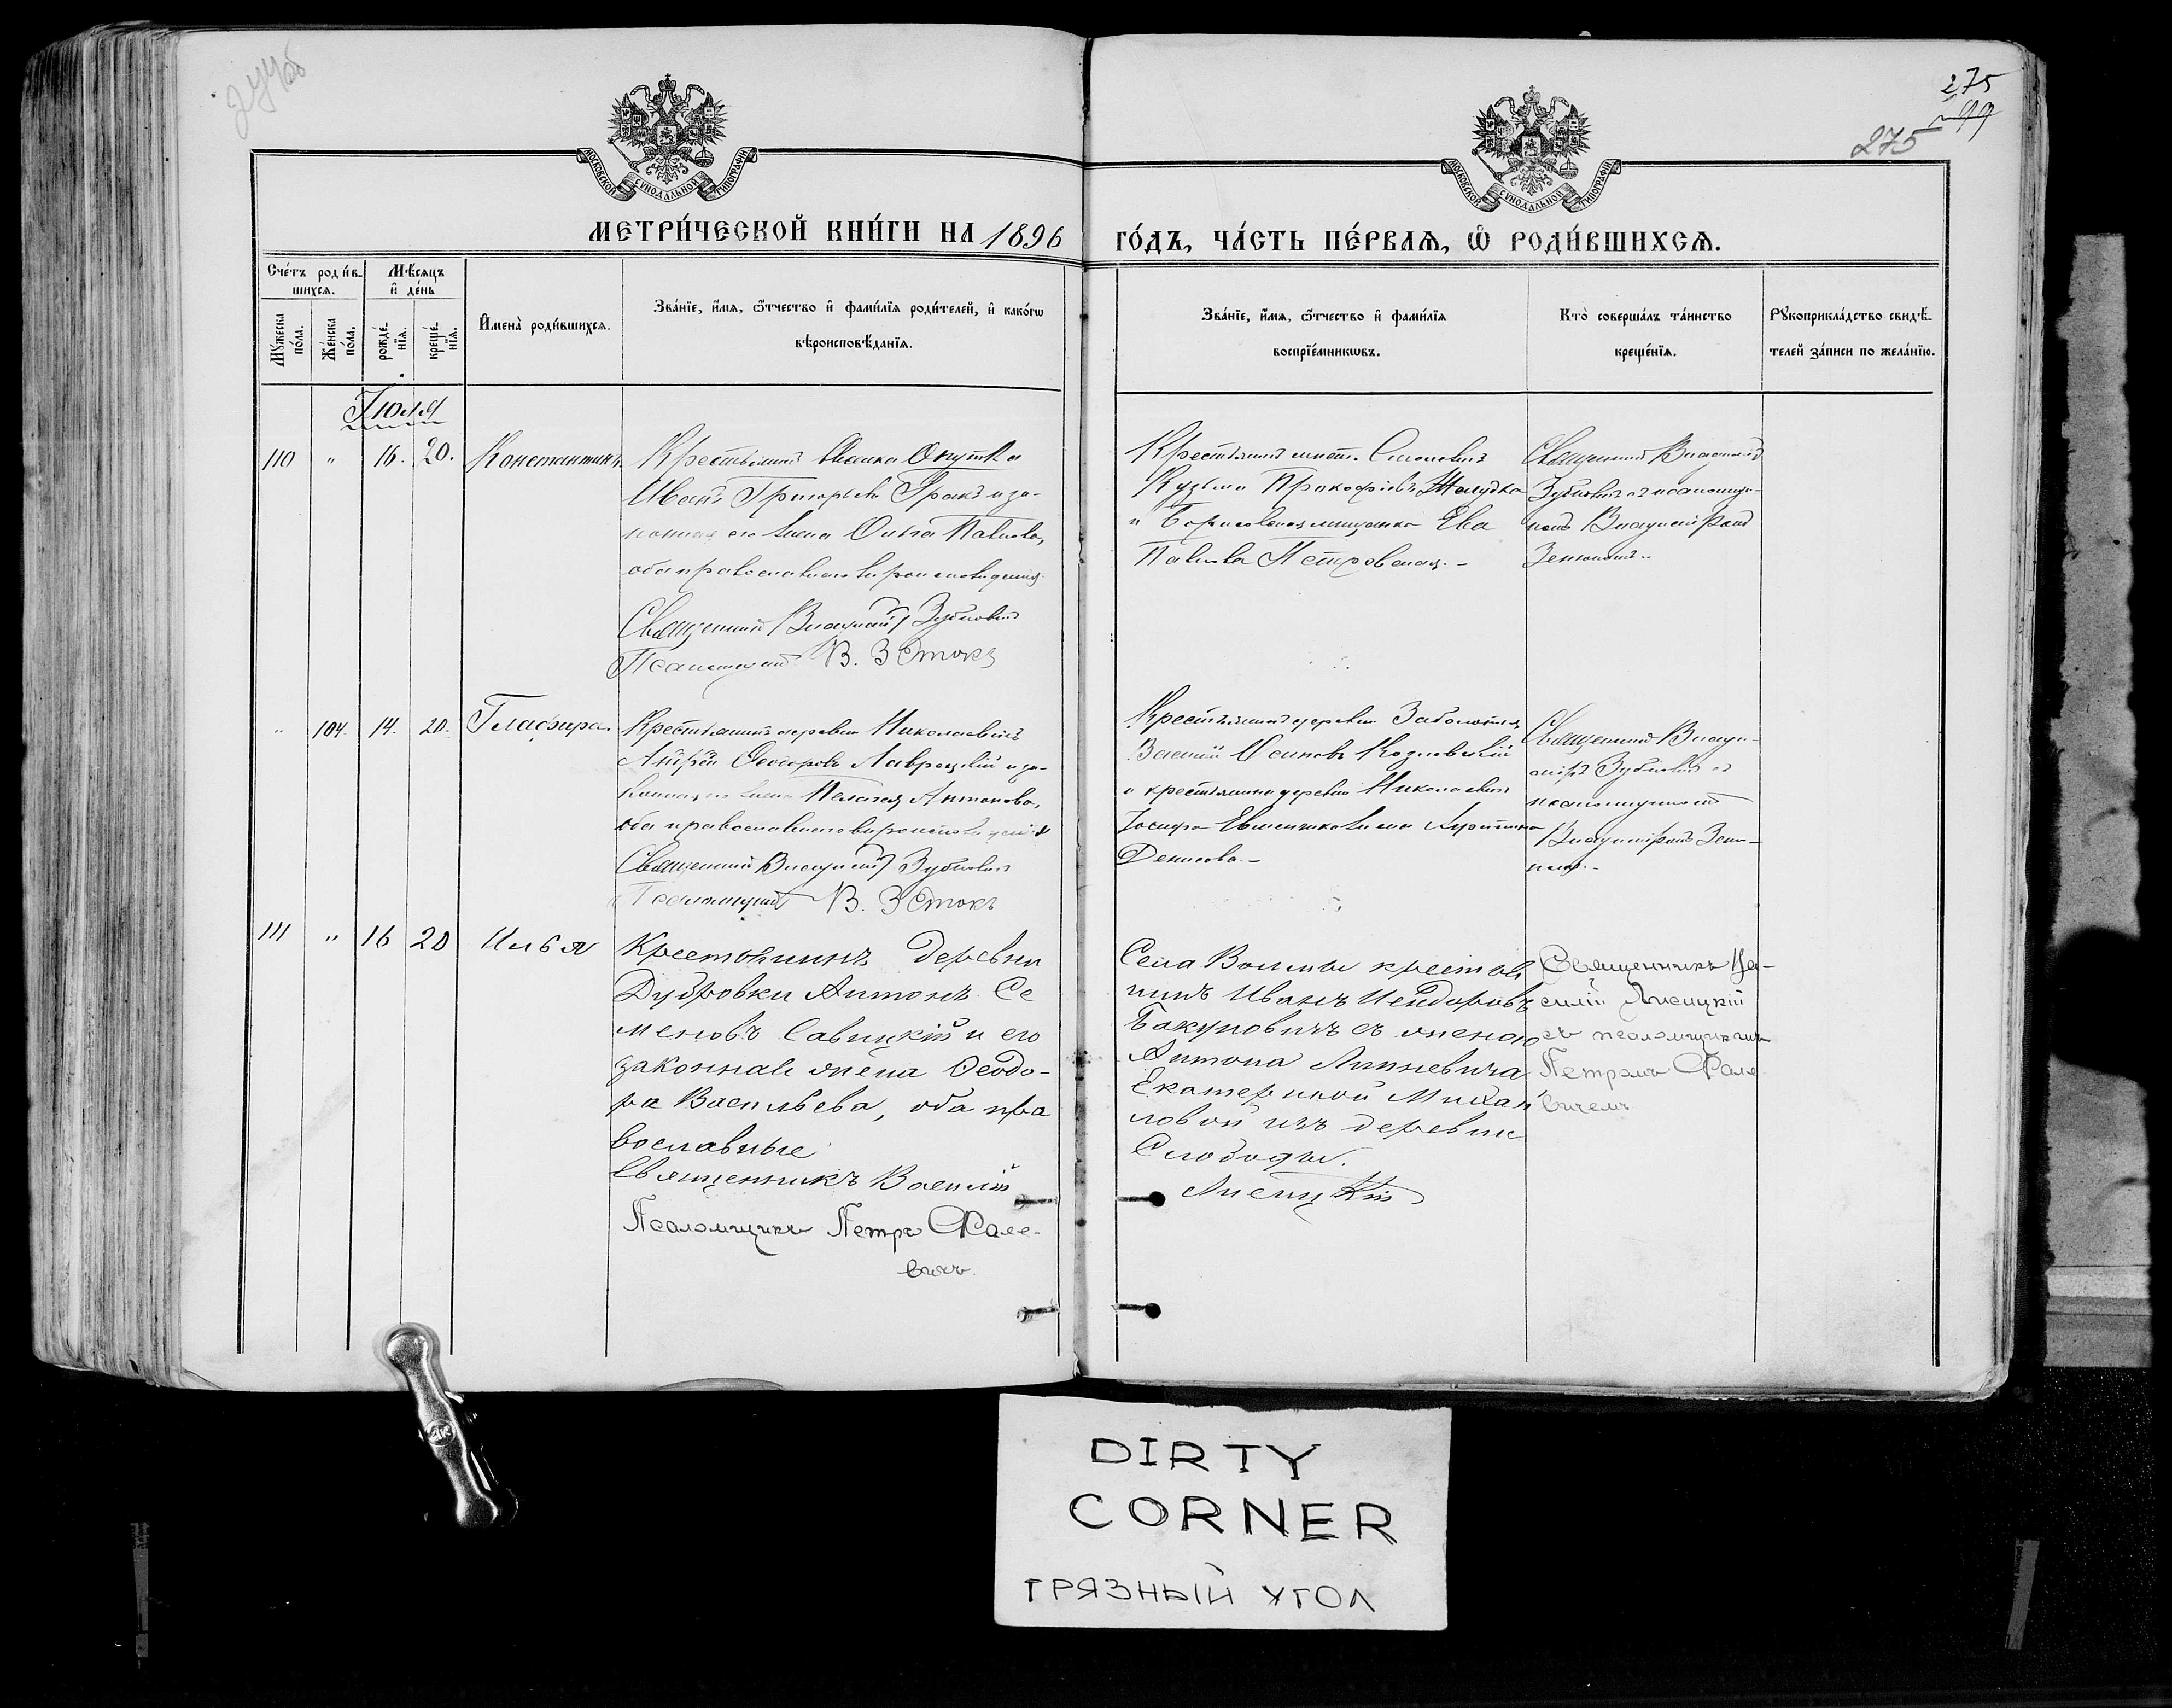 275
99
275
МОСКОВСКОЙ СѴНОДАЛЬНОЙ ТИПОГРАФІИ
МОСКОВСКОЙ СѴНОДАЛЬНОЙ ТИПОГРАФІИ
МЕТРИ́ЧЕСКОЙ КНИ́ГИ НА 1896
ГО́ДЪ, ЧА́СТЬ ПЕ́РВАѦ, Ѡ РОДИ́ВШИХСѦ.
Сче́тъ роди́в-
шихсѧ.
Мѣ́сяцъ
и де́нь
Мꙋ́жеска
по́ла.
Же́нска
по́ла.
рожде́-
нїѧ.
креще́-
нїѧ.
Имена̀ роди́вшихсѧ.
Зва́нїе, и́мѧ, ѻ́тчество и фами́лїѧ роди́телей, и како́гѡ
вѣроисповѣ́данїѧ.
Зва́нїе, и́мѧ, ѻ́тчество и фами́лїѧ
воспрїе́мникѡвъ.
Кто̀ соверша́лъ та́инство
креще́нїѧ.
Рꙋкоприкла́дство свидѣ́-
телей за́писи по жела́нїю.
Іюля
110 " 16. 20. Константинъ.
Крестьянинъ Опутка
Иванъ Григорьевъ и за-
конная его жена Ольга Павлова,
оба православнаго вѣроисповѣданія
Священникъ Владиміръ Зубковичъ
Псаломщикъ В. Зенюкъ
Крестьянинъ
Кузьма Прокофіевъ
и Борисовская мѣщанка Ева
Павлова Петровская. -
Священникъ Владиміръ
Зубковичъ съ псаломщи-
комъ Владиміромъ
Зенюкомъ. -
" 104. 14. 20. Глафира.
Крестьянинъ деревни Николаевичъ
Андрей Ѳеодоровъ Лаврецкій и за-
конная его жена Пелагея Антонова,
оба православнаго вѣроисповѣданія
Священникъ Владиміръ Зубковичъ
Псаломщикъ В. Зенюкъ
Крестьянинъ деревни
Василій Осиповъ Козловскій
и крестьянина деревни Николаевичъ
Іосифа жена
Денисова. -
Священникъ Влади-
міръ Зубковичъ съ
псаломщикомъ
Владиміромъ Зеню-
комъ. -
111 " 16 20 Илья
Крестьянинъ деревни
Дубровки Антонъ Се
меновъ Савицкій и его
законная жена Ѳеодо-
ра Васильева, оба пра
вославные
Священникъ Василій
Псаломщикъ Петръ Фале-
вичъ.
Села Волмы крестья
нинъ Иванъ Исидоровъ
Бакуновичъ съ женою
Антона Линкевича
Екатериной Михай
ловой изъ деревни
Слободы.
Лисицкій
Священникъ Ва-
силій Лисицкій
съ псаломщикомъ
Петромъ Фале
вичемъ
DIRTY
CORNER
ГРЯЗНЫЙ УГОЛ